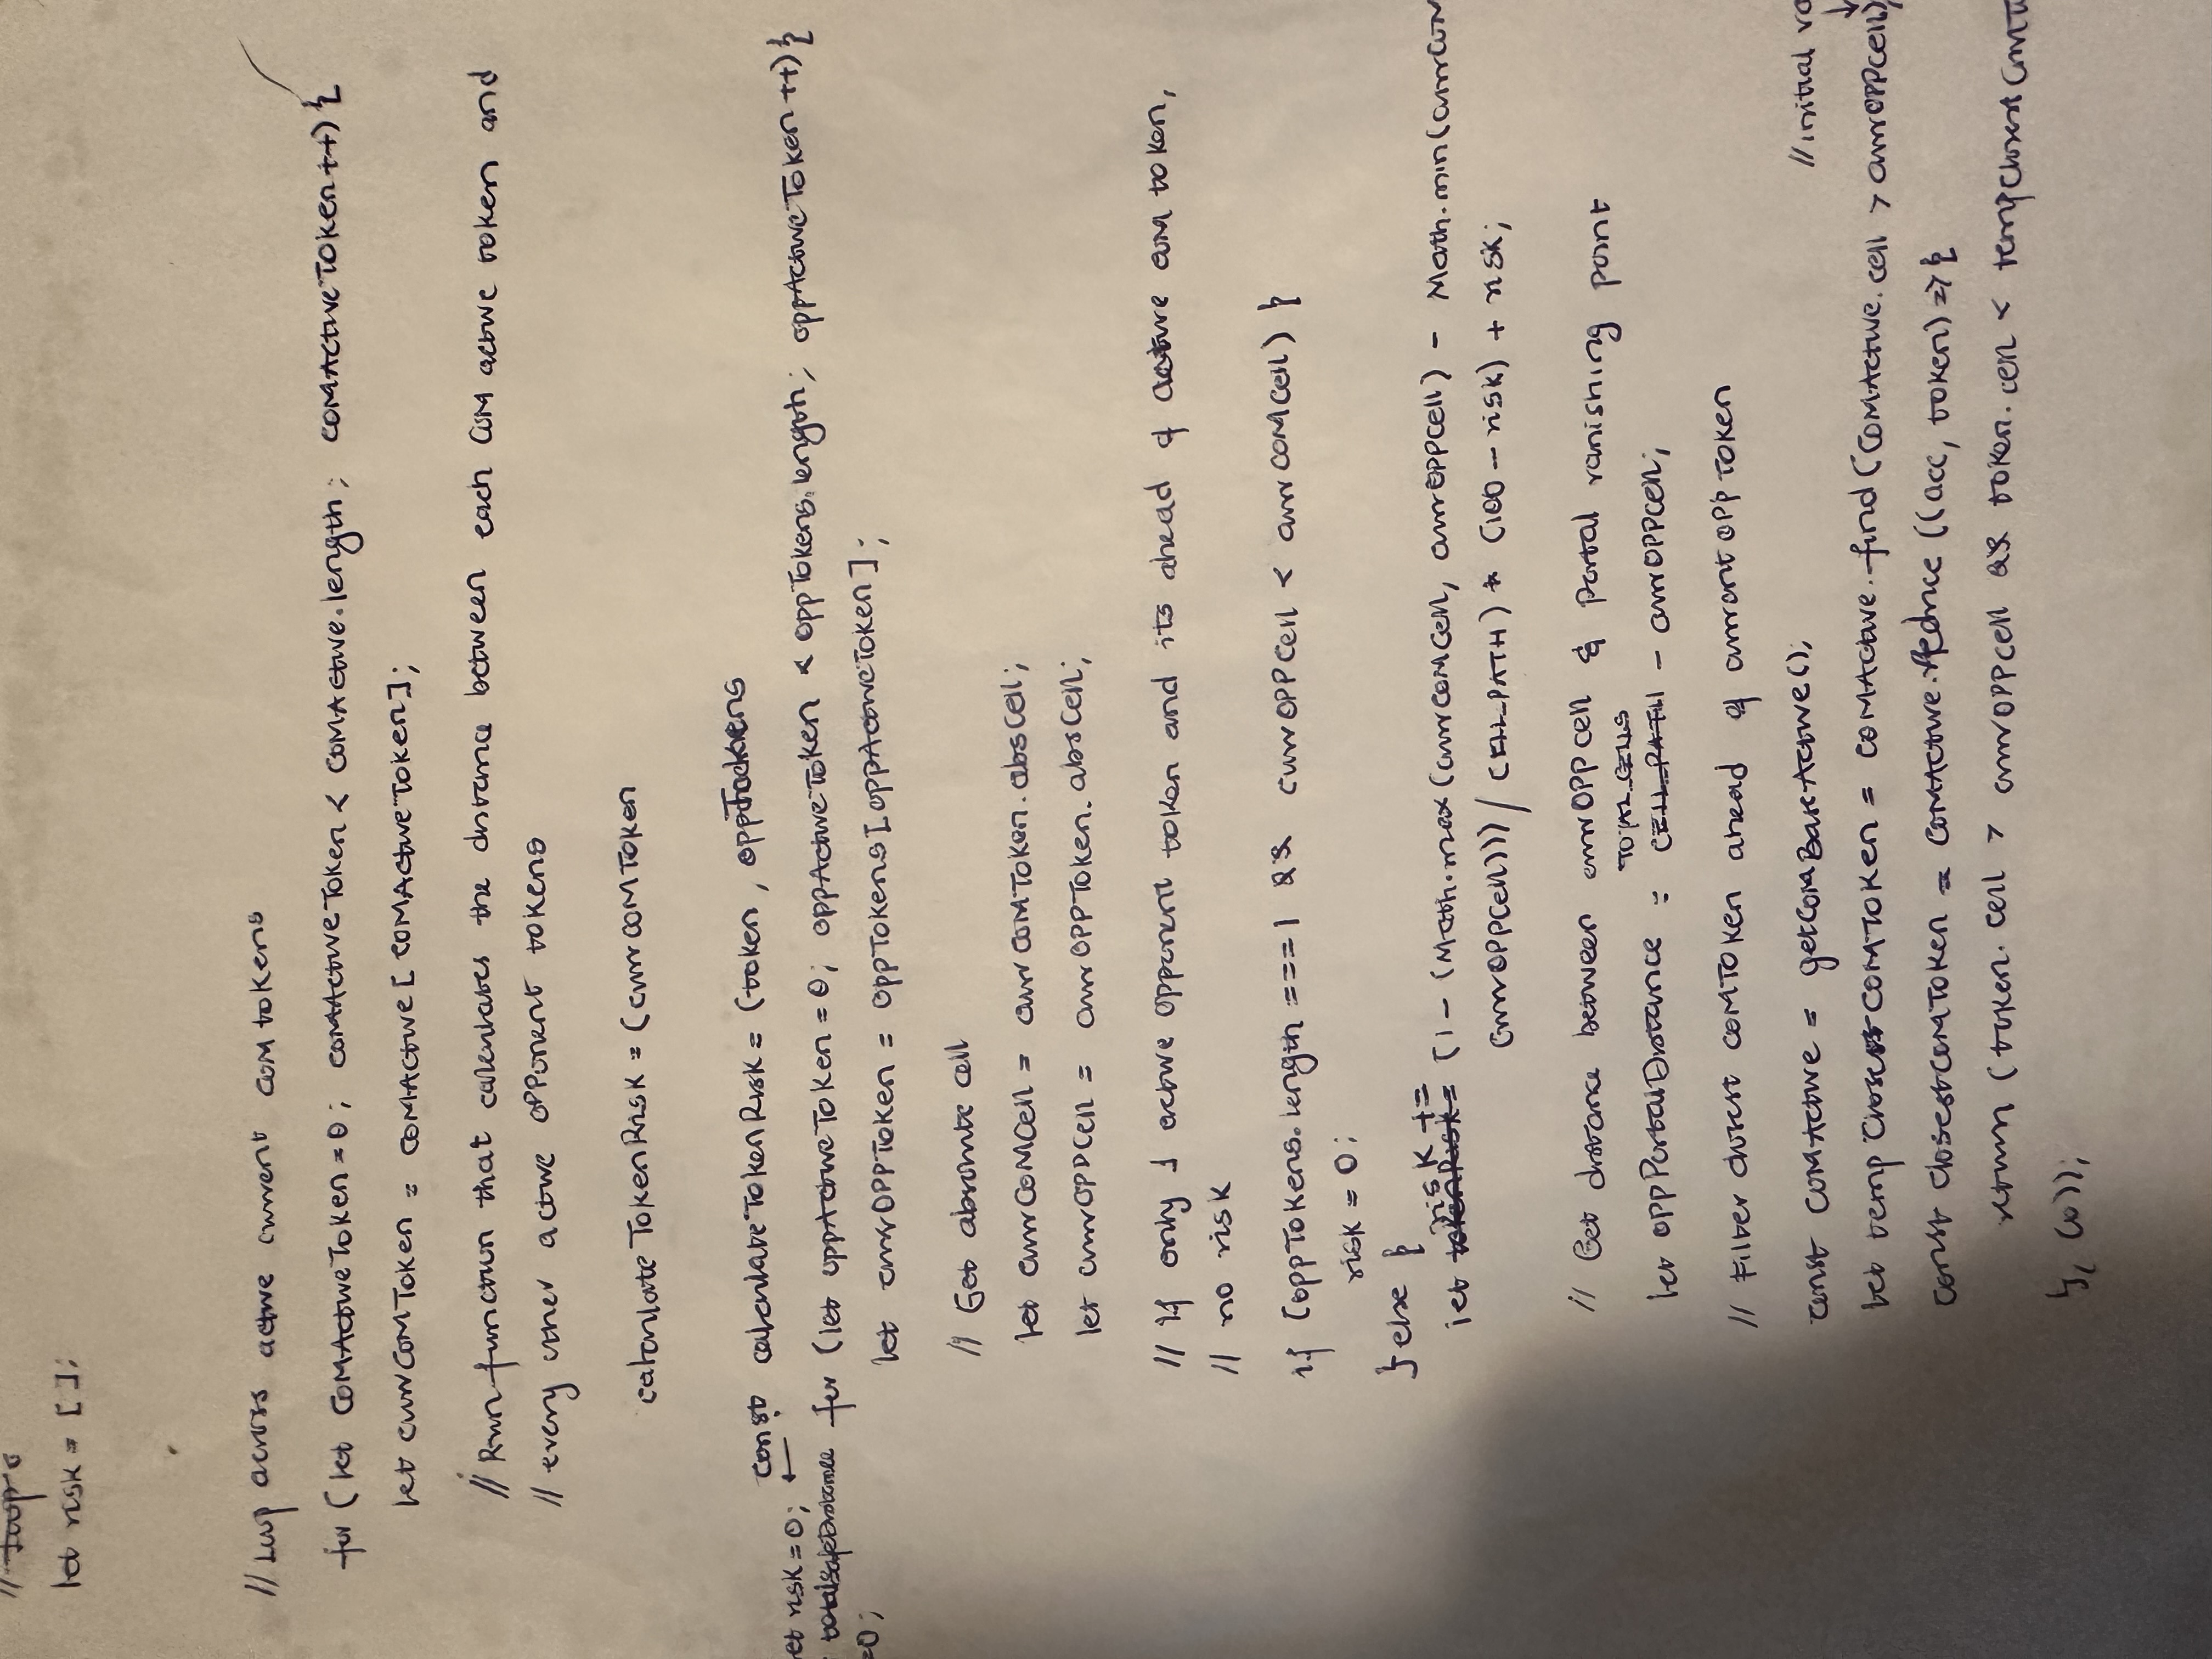 let risk = [];
// Loop across active current COM tokens
for (let COMActiveToken = 0; COMActiveToken < COMActive.length; COMActiveToken++) {
let currCOMToken = COMActive[COMActiveToken];
// Run function that calculates the distance between each COM active token and
// every other active opponent tokens
calculateTokenRisk = (currCOMToken
let risk = 0; ← const calculateTokenRisk = (token, oppTokens
for (let oppActiveToken = 0; oppActiveToken < oppTokens.length; oppActiveToken++) {
= 0; let currOPPToken = oppTokens[oppActiveToken];
// Get absolute cell
let currCOMCell = currCOMToken.absCell;
let currOPPCell = currOPPToken.absCell;
// If only 1 active opponent token and its ahead of active COM token,
// no risk
if (oppTokens.length === 1 && currOPPCell < currCOMCell) {
risk = 0;
} else {
let risk += (1 - (Math.max(currCOMCell, currOPPCell) - Math.min(currCOM
currOPPCell))) / CELL_PATH) * (100 - risk) + risk;
// Get distance between currOPPCell & Portal vanishing point
TOTAL_CELLS
let oppPortalDistance = CELL_PATH - currOPPCell;
// Filter closest COMToken ahead of current OPPToken
// initial va
const COMActive = getCOMBaseActive();
let tempClosestCOMToken = COMActive.find(COMActive.cell > currOPPCell)
const closestCOMToken = COMActive.reduce((acc, token) => {
return (token.cell > currOPPCell && token.cell < tempClosestCOMTo
}, (0));